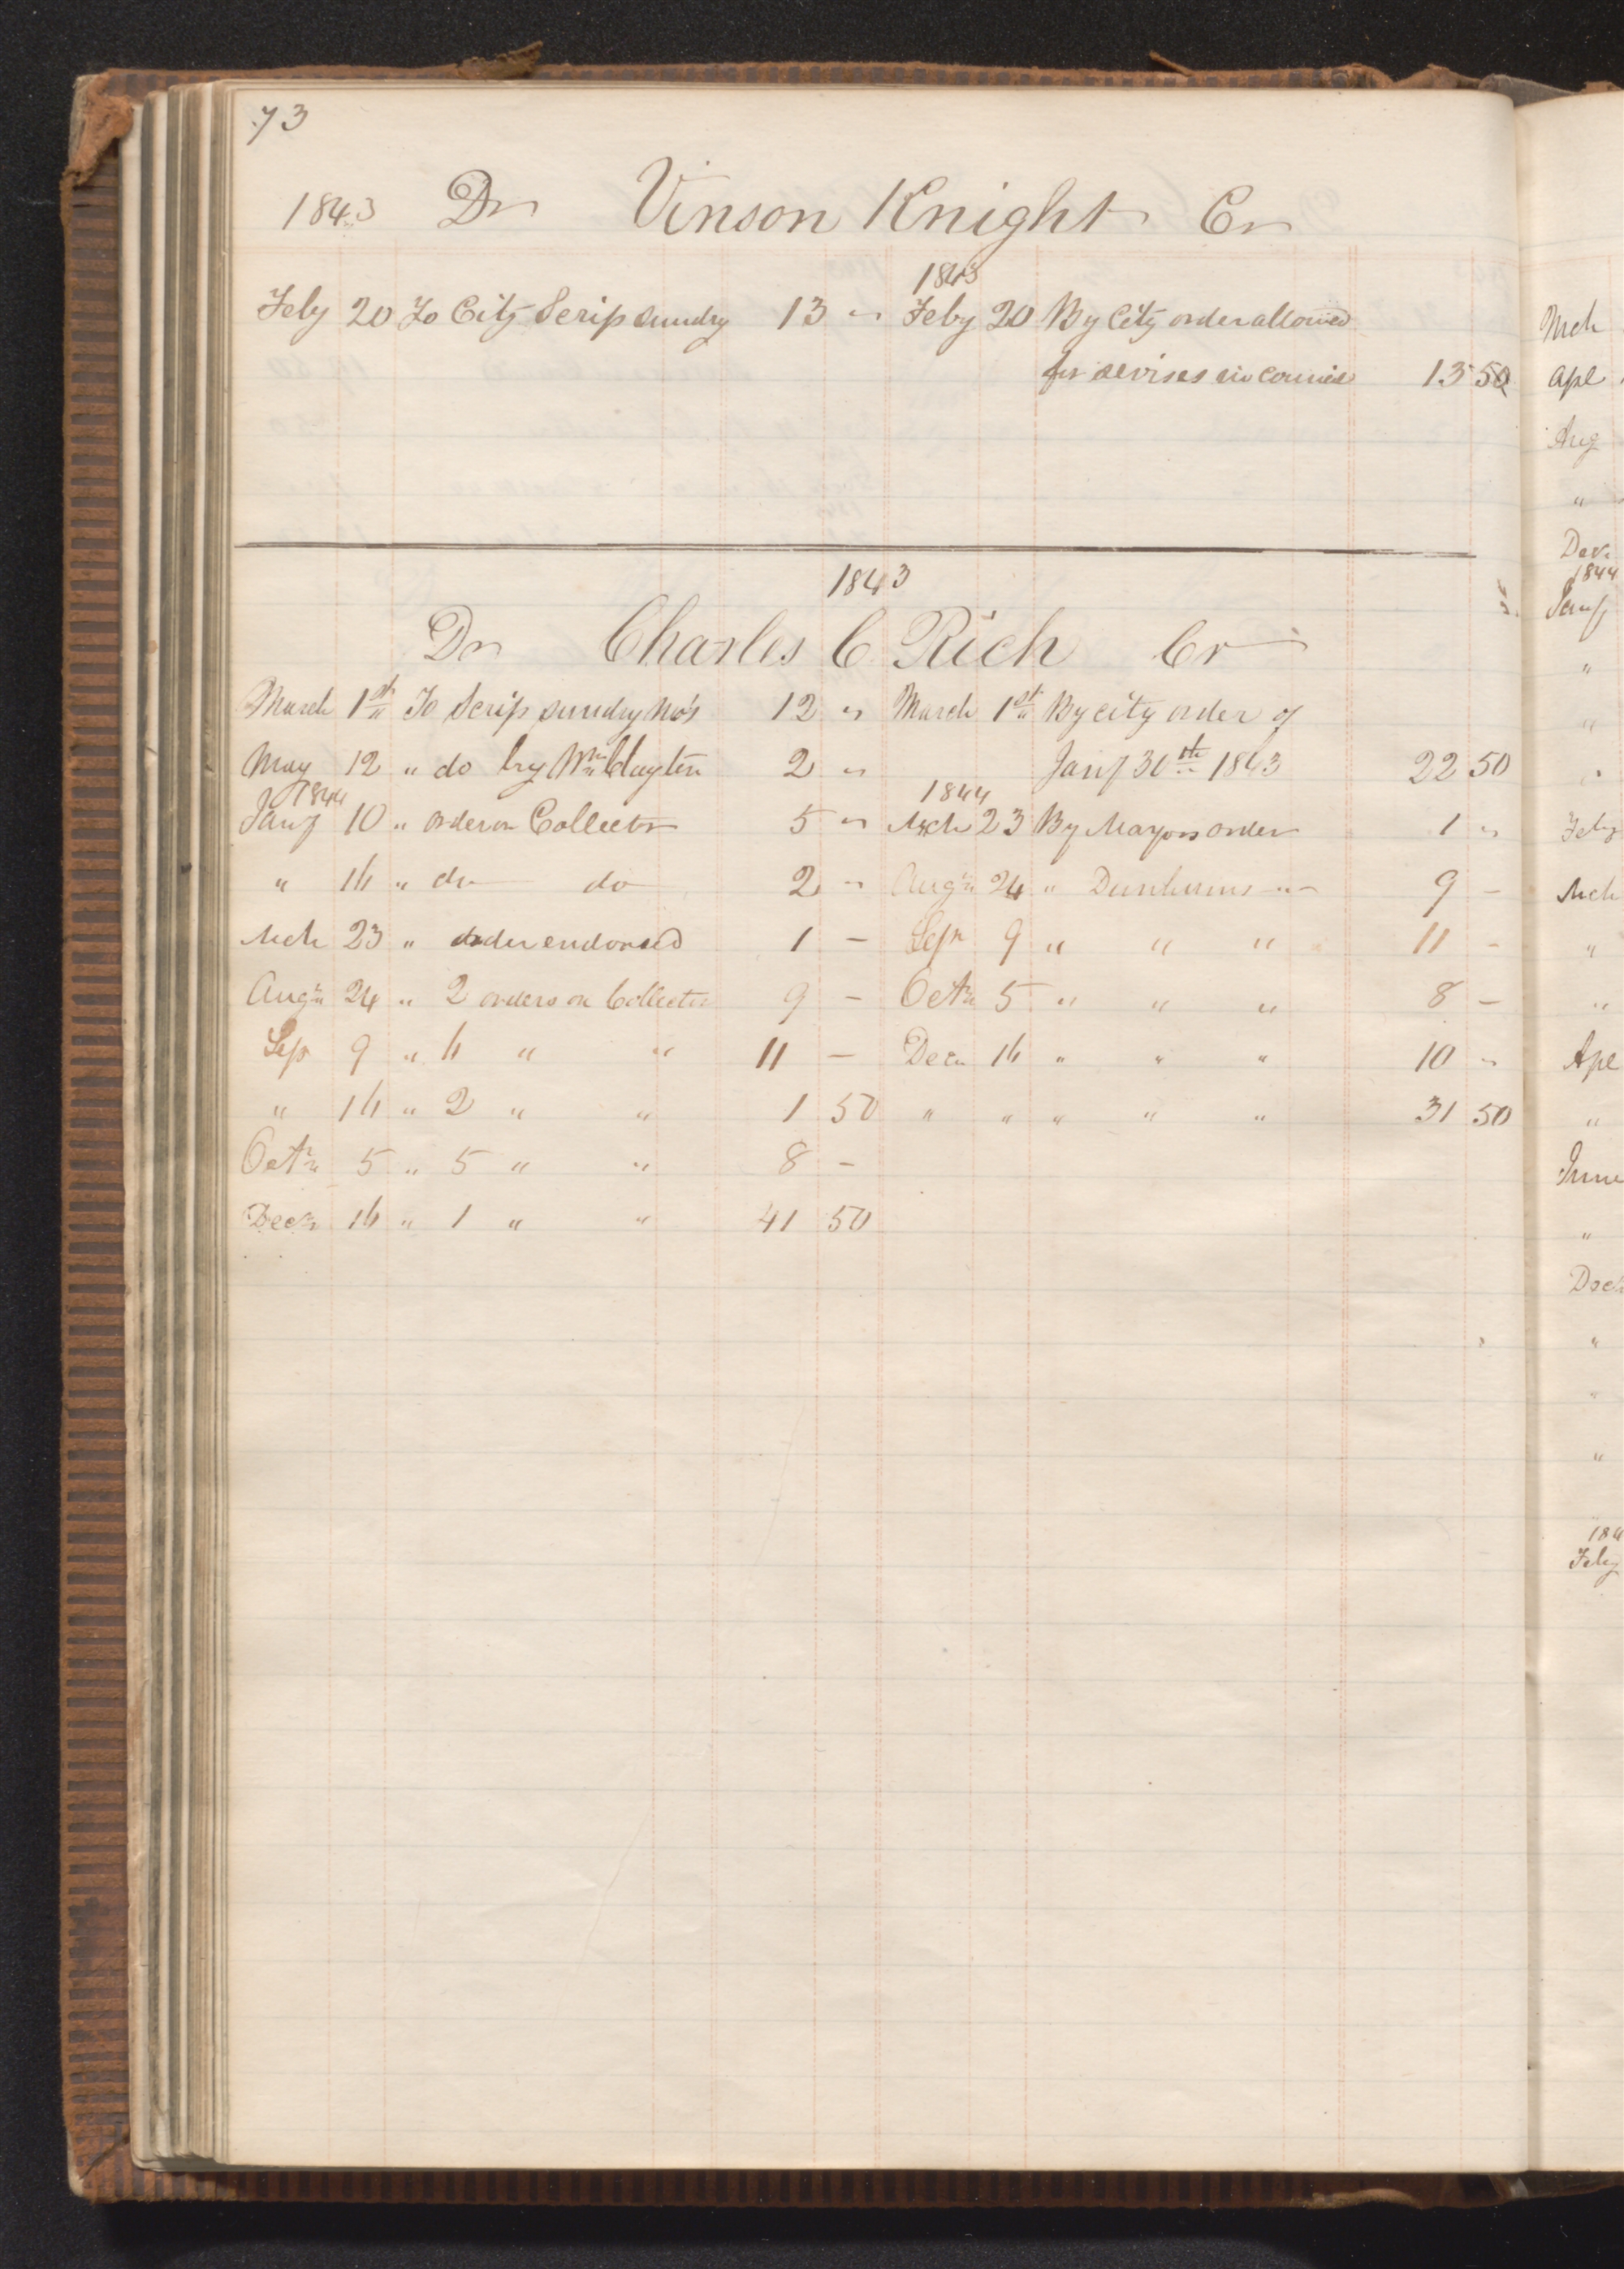 73
1843 Dr Vinson Knight Cr
1843
Feby 20 To City Scrip sundry 13 " Feby 20 By City order allowed
for servises in Council 13 50
1843
Dr Charles C Rich Cr
March 1st To Scrip sundry No's 12 " March 1st By city order of
May 12 " do by Wm Clayton 2 " Jany 30th 1843 22 50
1844 1844
Jany 10 " order on Collector 5 " Mch 23 By Mayors order 1 "
" 16 " do do 2 " Augt 24 " Dunhums " 9 -
Mch 23 " order endorsed 1 - Sep 9 " " " 11 -
Augt 24 " 2 orders on Collector 9 - Octr 5 " " " 8 -
Sep 9 " 6 " " 11 - Dec 16 " " " 10 "
" 16 " 2 " " 1 50 " " " " " 31 50
Octr 5 " 5 " " 8 -
Decr 16 " 1 " " 41 50
Mch
Apl
Aug
"
Dec
1844
Jany
"
"
"
Feby
Mch
"
"
Apl
"
June
"
Dec
"
"
"
184
Feby